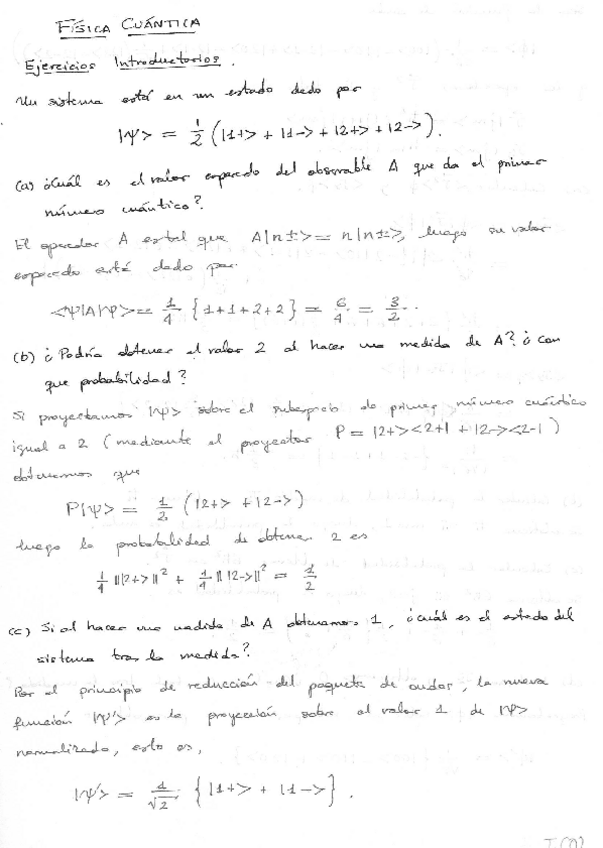 FÍSICA CUÁNTICA
Ejercicios Introductorios.
Un sistema está en un estado dado por
|Ψ> = 1/2 (|1+> + |1-> + |2+> + |2->).
(a) ¿Cuál es el valor esperado del observable A que da el primer
número cuántico?
El operador A es tal que A|n±> = n|n±>, luego su valor
esperado está dado por
<Ψ|A|Ψ> = 1/4 {1+1+2+2} = 6/4 = 3/2.
(b) ¿Podría obtener el valor 2 al hacer una medida de A? ¿con
que probabilidad?
Si proyectamos |Ψ> sobre el subespacio de primer número cuántico
igual a 2 (mediante el proyector P = |2+><2+| + |2-><2-|)
obtenemos que
P|Ψ> = 1/2 (|2+> + |2->)
luego la probabilidad de obtener 2 es
1/4 || |2+> ||² + 1/4 || |2-> ||² = 1/2
(c) Si al hacer una medida de A obtenemos 1, ¿cuál es el estado del
sistema tras la medida?
Por el principio de reducción del paquete de ondas, la nueva
función |Ψ'> es la proyección sobre el valor 1 de |Ψ>
normalizado, esto es,
|Ψ'> = 1/√2 {|1+> + |1->}.